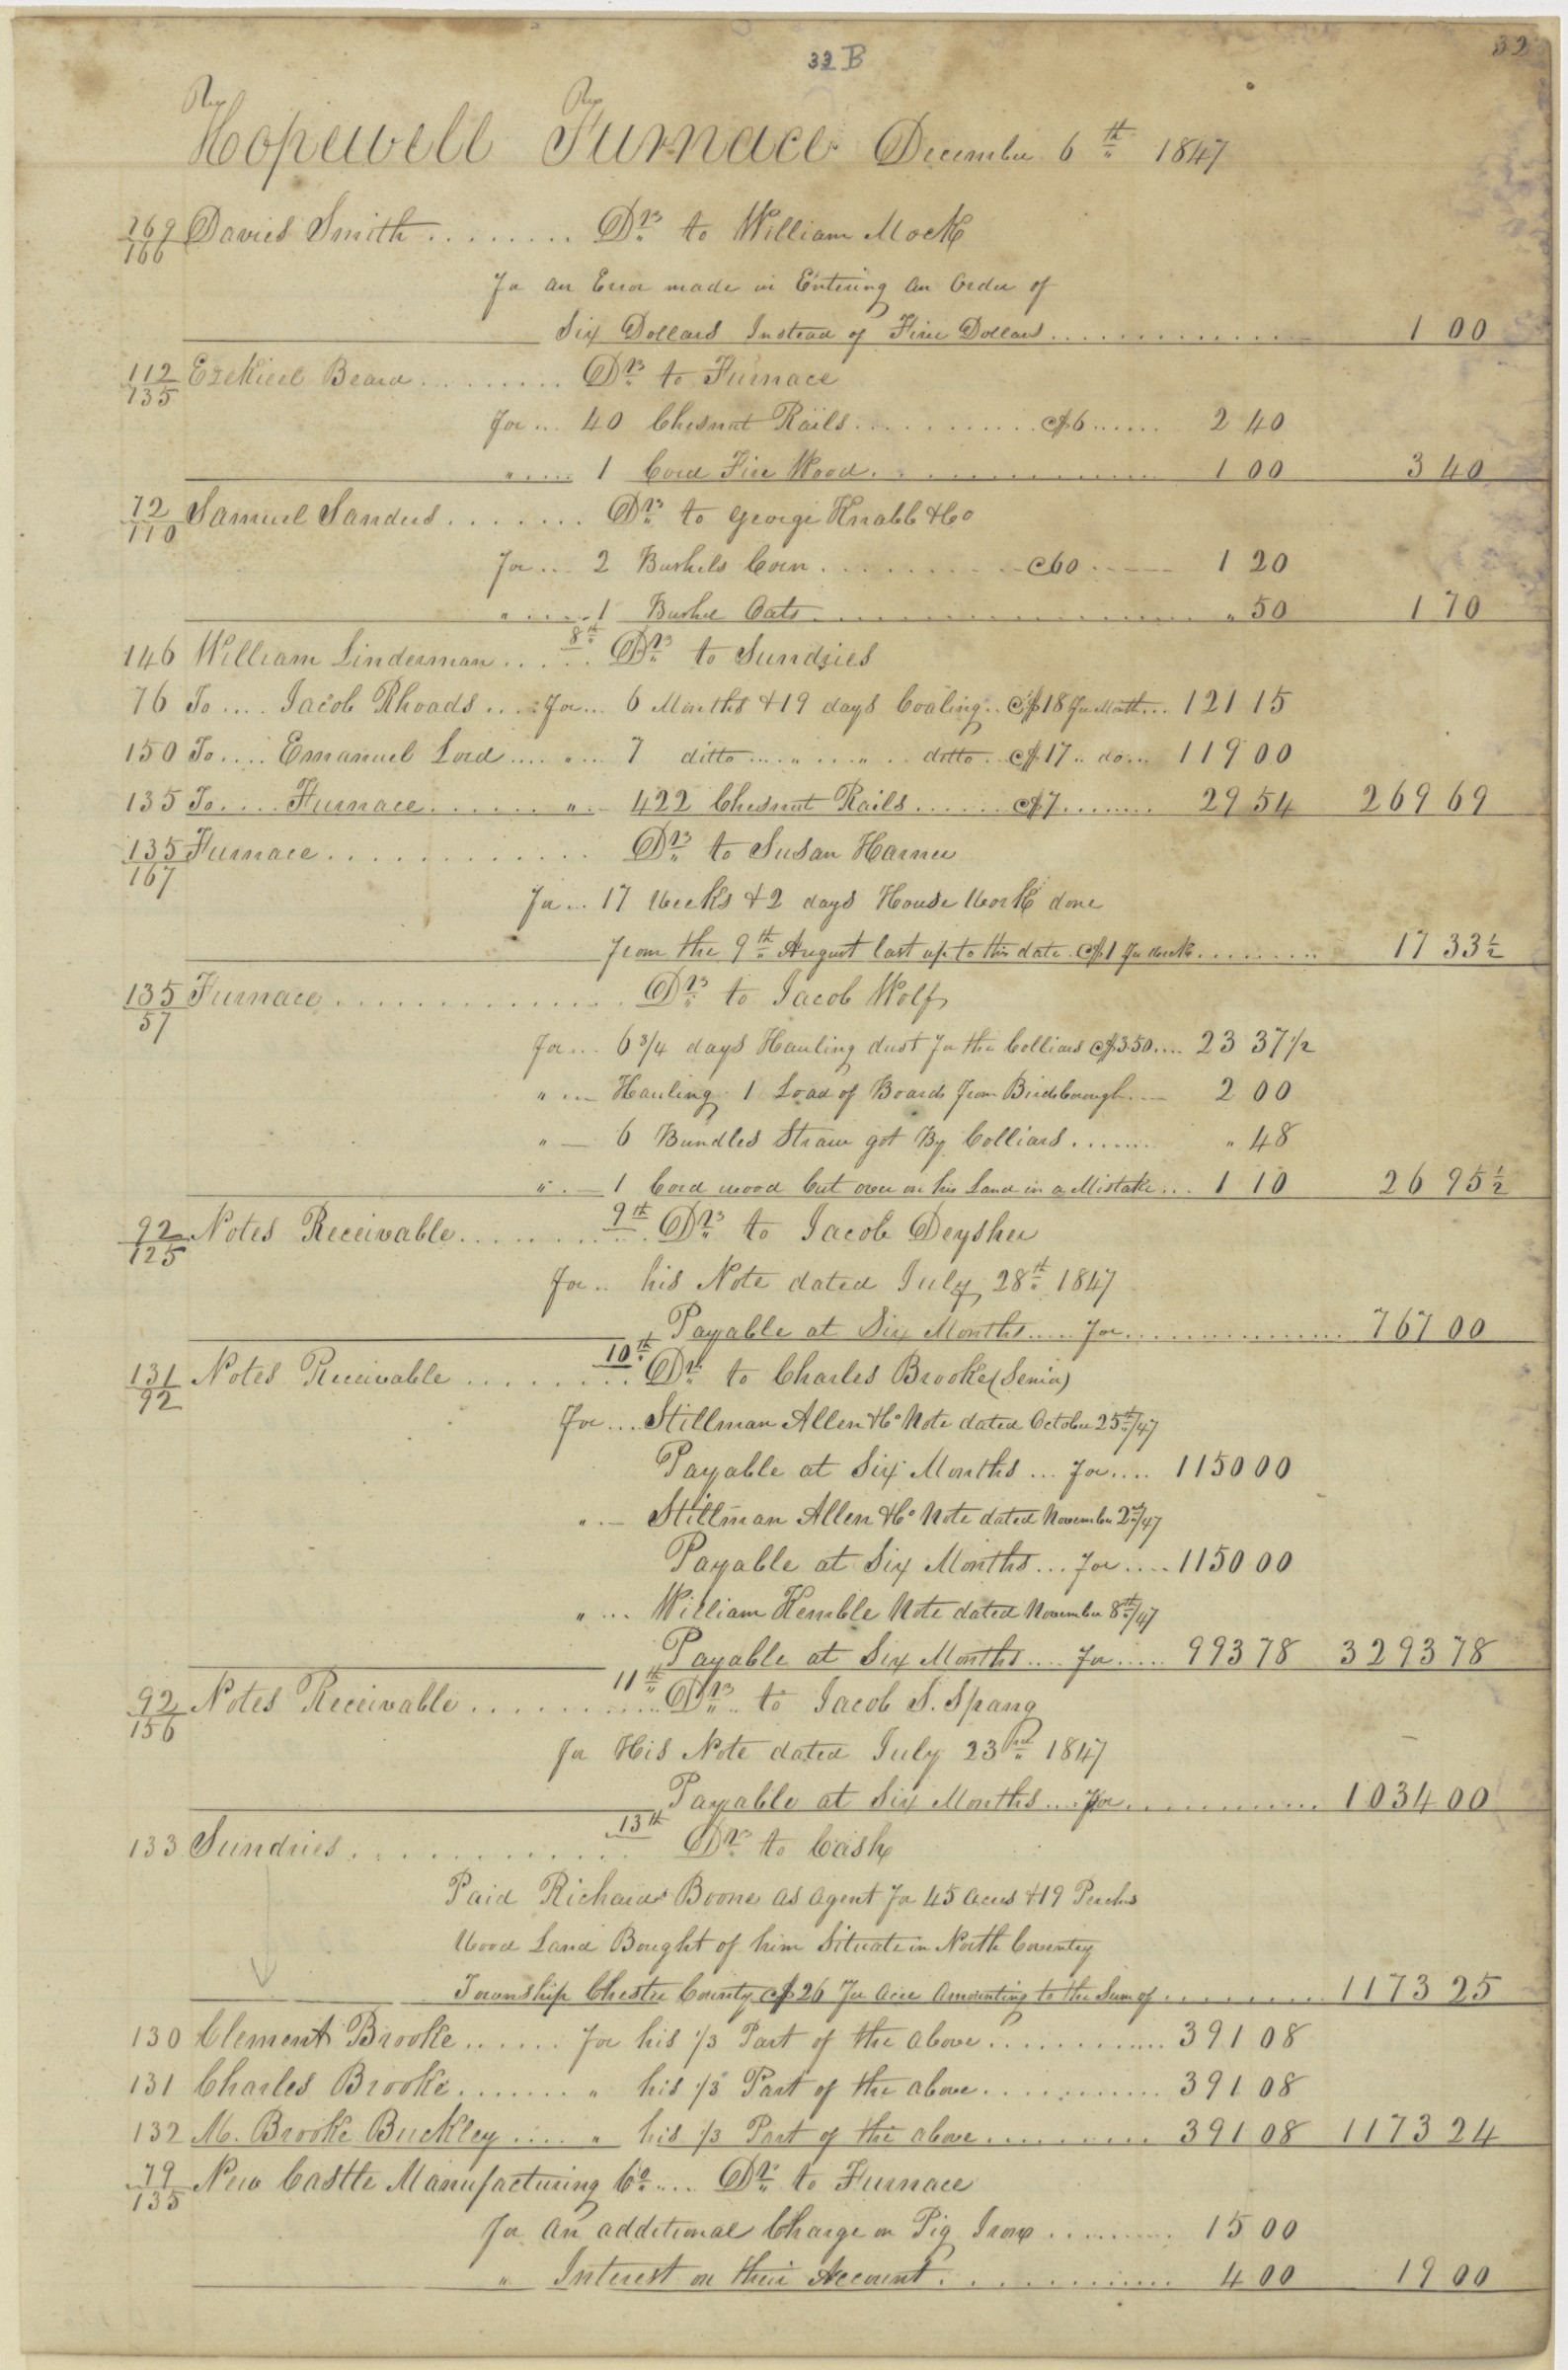 32 B
32
Hopewell Furnace December 6th 1847
169/166 David Smith ........ Dr to William Mock
For an Error made in Entering an Order of
Six Dollars Instead of Five Dollars .............. 1 00
112/135 Ezekieel Beard ......... Dr to Furnace
For ... 40 Chesnut Rails ............ c$6 ...... 2 40
" ..... 1 Cord Fire Wood ................... 1 00 3 40
72/110 Samuel Sanders ....... Dr to George Knabb & Co
For ... 2 Bushels Corn .......... c60 ..... 1 20
" ..... 1 Bushel Oats .................... " 50 1 70
8th
146 William Linderman ...... Dr to Sundries
76 To .... Jacob Rhoads .... For ... 6 Months & 19 days Coaling .. c$18 Per Month ... 121 15
150 To .... Emanuel Lord .... " ... 7 ditto .... " .... " .. ditto .. c$17 .. do ... 119 00
135 To .... Furnace ...... " .. 422 Chesnut Rails ...... c$7 ........ 29 54 269 69
135/167 Furnace ............. Dr to Susan Harner
For ... 17 Weeks & 2 days House Work done
from the 9th August last up to this date c$1 Per week ......... 17 33 1/2
135/57 Furnace .............. Dr to Jacob Wolf
For ... 6 3/4 days Hauling dust for the Colliars c$350 .... 23 37 1/2
" ... Hauling 1 Load of Boards from Birdsborough ... 2 00
" — 6 Bundles Straw got By Colliars ........ " 48
" . — 1 Cord wood Cut over on his Land in a Mistake ... 1 10 26 95 1/2
9th
92/125 Notes Receivable ............ Dr to Jacob Deysher
For .. his Note dated July 28th 1847
Payable at Six Months ..... For ................ 767 00
10th
131/92 Notes Receivable ......... Dr to Charles Brooke (Senior)
For ... Stillman Allen & Co Note dated October 25th/47
Payable at Six Months ... For .... 1150 00
" . — Stillman Allen & Co Note dated November 2nd/47
Payable at Six Months ... For .... 1150 00
" ... William Kemble Note dated November 8th/47
Payable at Six Months .... For ..... 993 78 3293 78
11th
92/156 Notes Receivable ........... Dr .. to Jacob S. Spang
For His Note dated July 23rd 1847
Payable at Six Months .... For ............. 1034 00
13th
133 Sundries ............. Dr to Cash
Paid Richard Boone as Agent for 45 Acres & 19 Perches
Wood Land Bought of him Situate in North Coventry
Township Chester County c$26 Per Acre Amounting to the Sum of ......... 1173 25
130 Clement Brooke ...... For his 1/3 Part of the above ............ 391 08
131 Charles Brooke ....... " his 1/3 Part of the above ............ 391 08
132 M. Brooke Buckley .... " his 1/3 Part of the above .......... 391 08 1173 24
79/135 New Castle Manufacturing Co .... Dr to Furnace
For an additional Charge on Pig Iron ......... 15 00
" Interest on their Account ............. 4 00 19 00